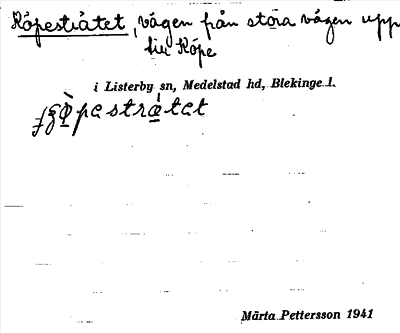 Köpestråtet, vägen från stora vägen upp
till Köpe
i Listerby sn, Medelstad hd, Blekinge l.
Märta Pettersson 1941